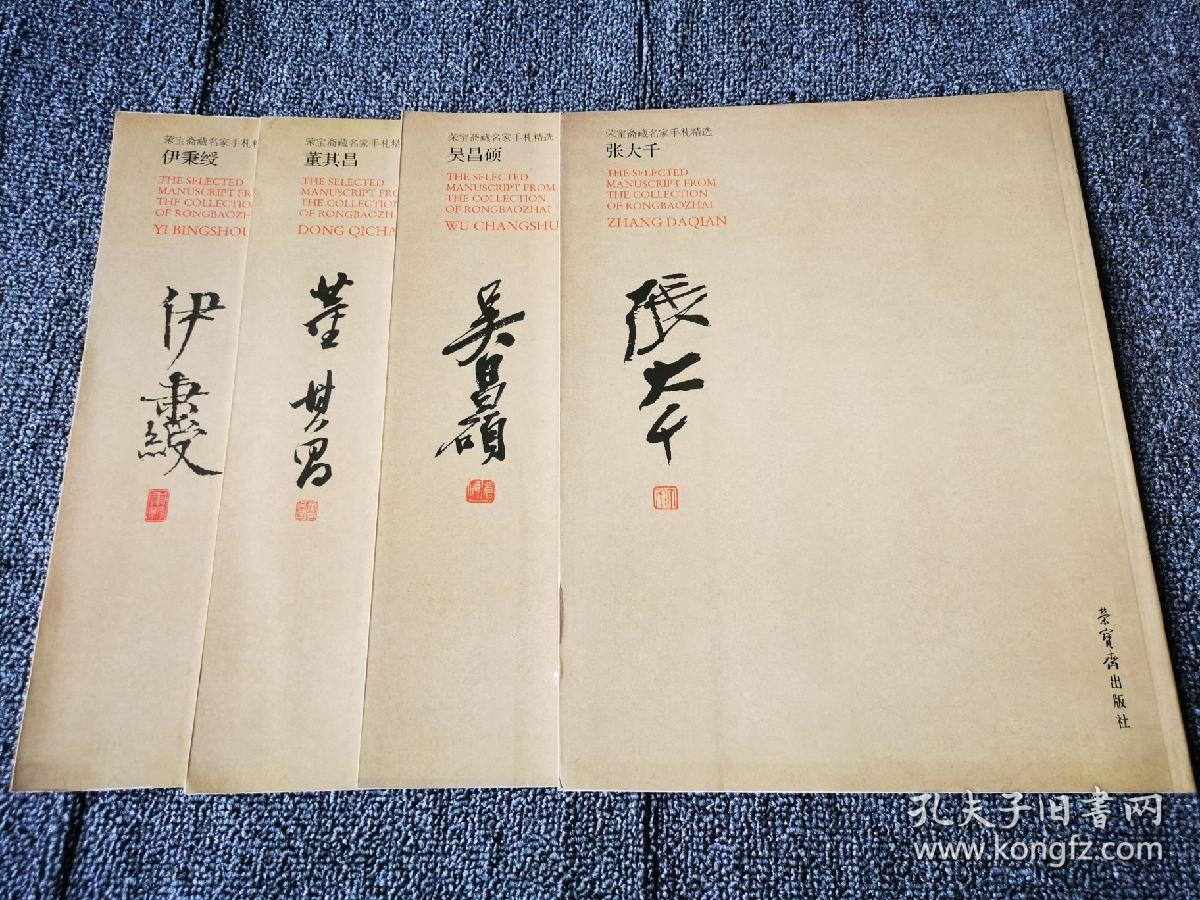 荣宝斋藏名家手札精
伊秉绶
THE SELECTED
MANUSCRIPT FR
THE COLLECTIO
OF RONGBAOZH
YI BINGSHOU
伊
秉
绶
荣宝斋藏名家手札精
董其昌
THE SELECTED
MANUSCRIPT FRO
THE COLLECTION
OF RONGBAOZH
DONG QICHA
董
其
昌
荣宝斋藏名家手札精选
吴昌硕
THE SELECTED
MANUSCRIPT FROM
THE COLLECTION
OF RONGBAOZHAI
WU CHANGSHU
吴
昌
碩
荣宝斋藏名家手札精选
张大千
THE SELECTED
MANUSCRIPT FROM
THE COLLECTION
OF RONGBAOZHAI
ZHANG DAQIAN
張
大
千
榮寶齋出版社
孔夫子旧书网
www.kongfz.com